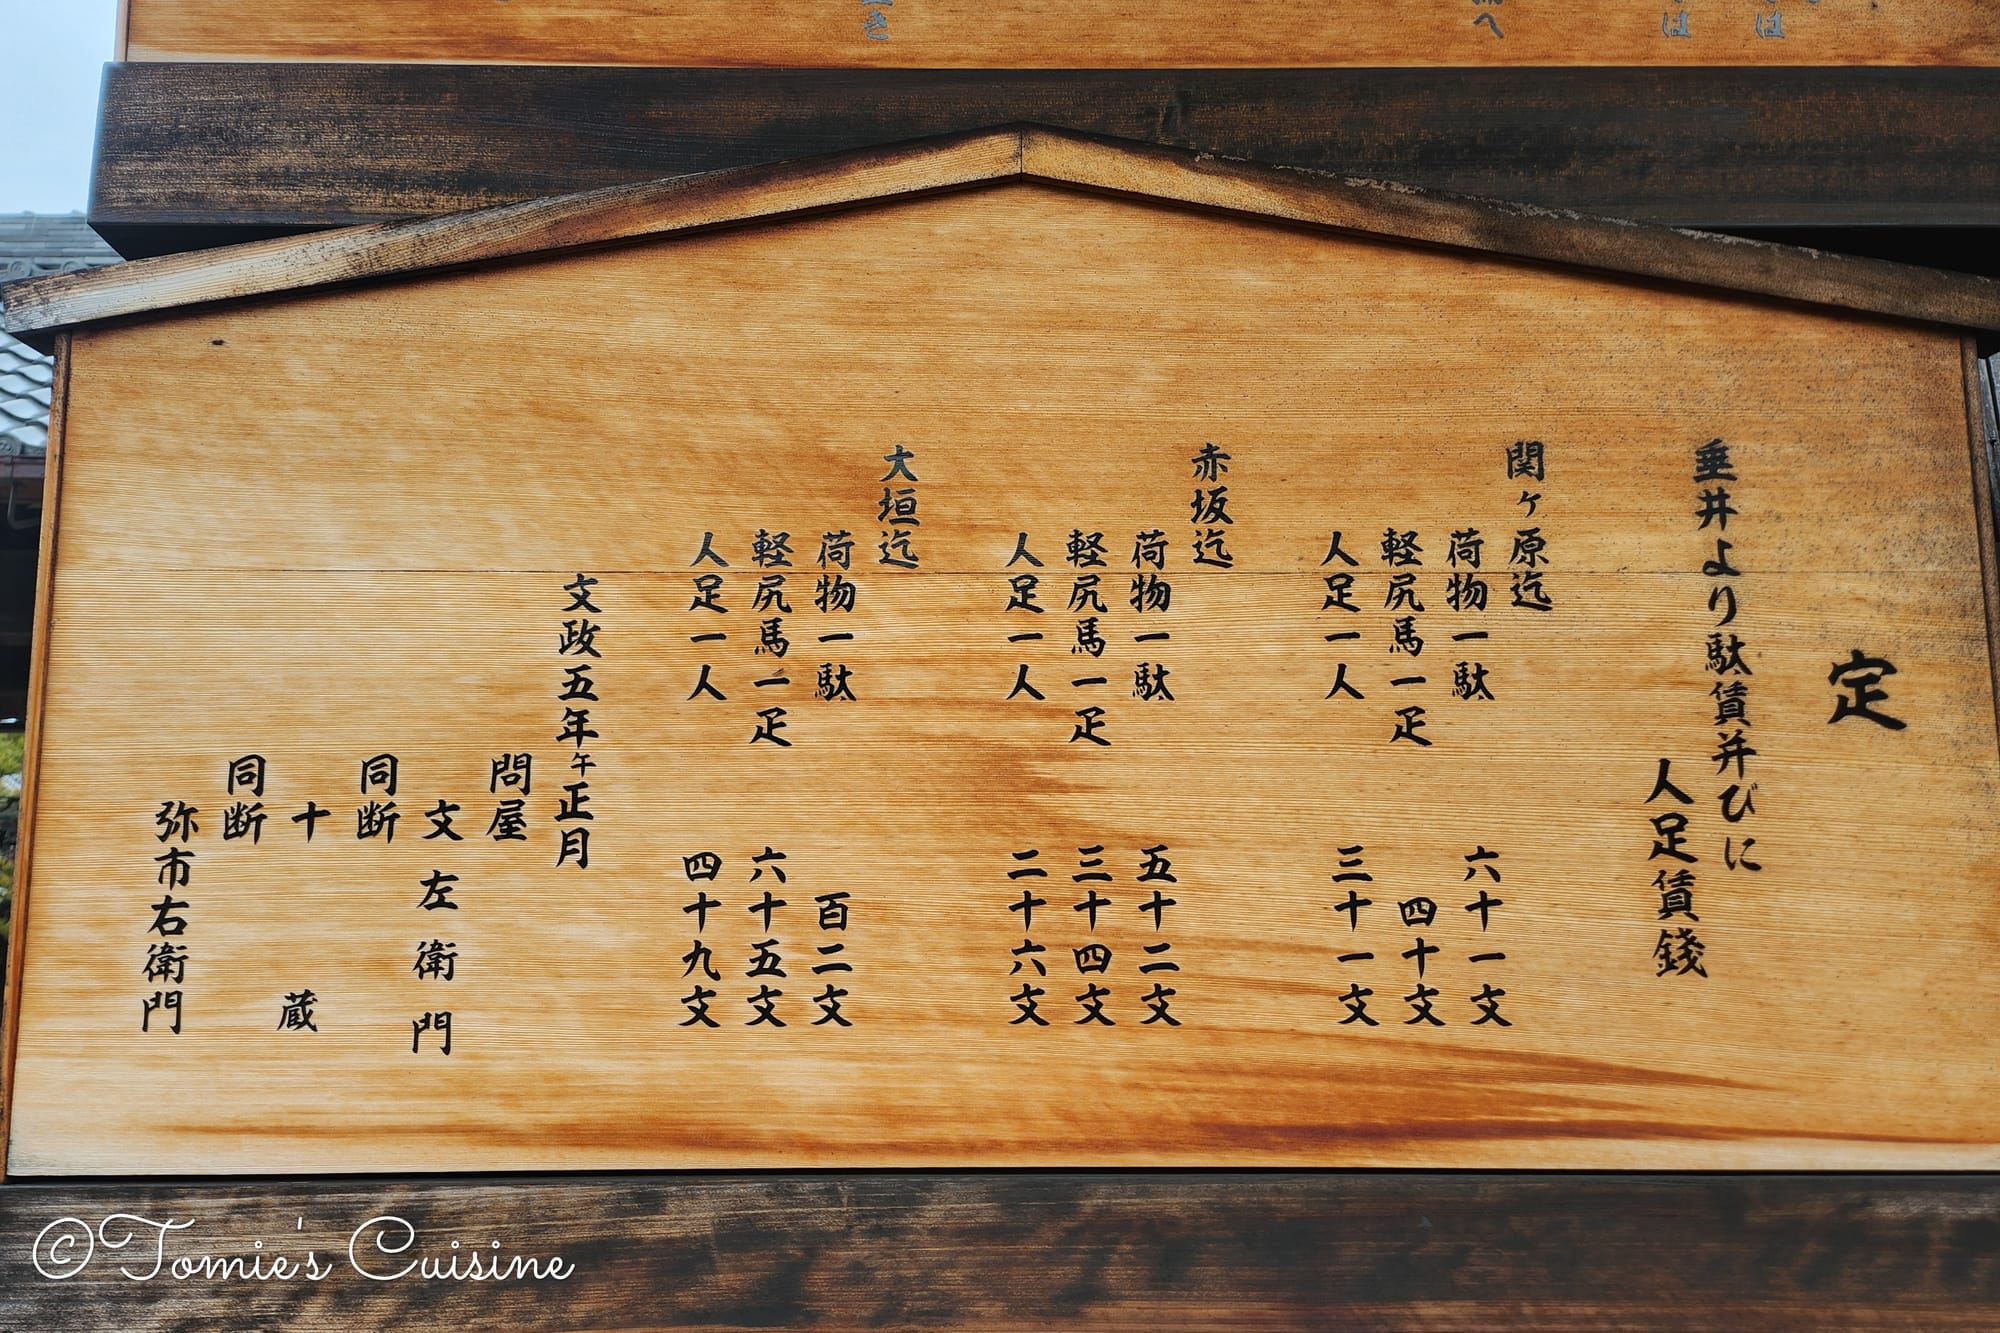 定
垂井より駄賃并びに
人足賃錢
関ヶ原迄
荷物一駄 六十一文
軽尻馬一疋 四十文
人足一人 三十一文
赤坂迄
荷物一駄 五十二文
軽尻馬一疋 三十四文
人足一人 二十六文
大垣迄
荷物一駄 百二文
軽尻馬一疋 六十五文
人足一人 四十九文
文政五年午正月
問屋
文左衛門
同断
十蔵
同断
弥市右衛門
©Tomie's Cuisine